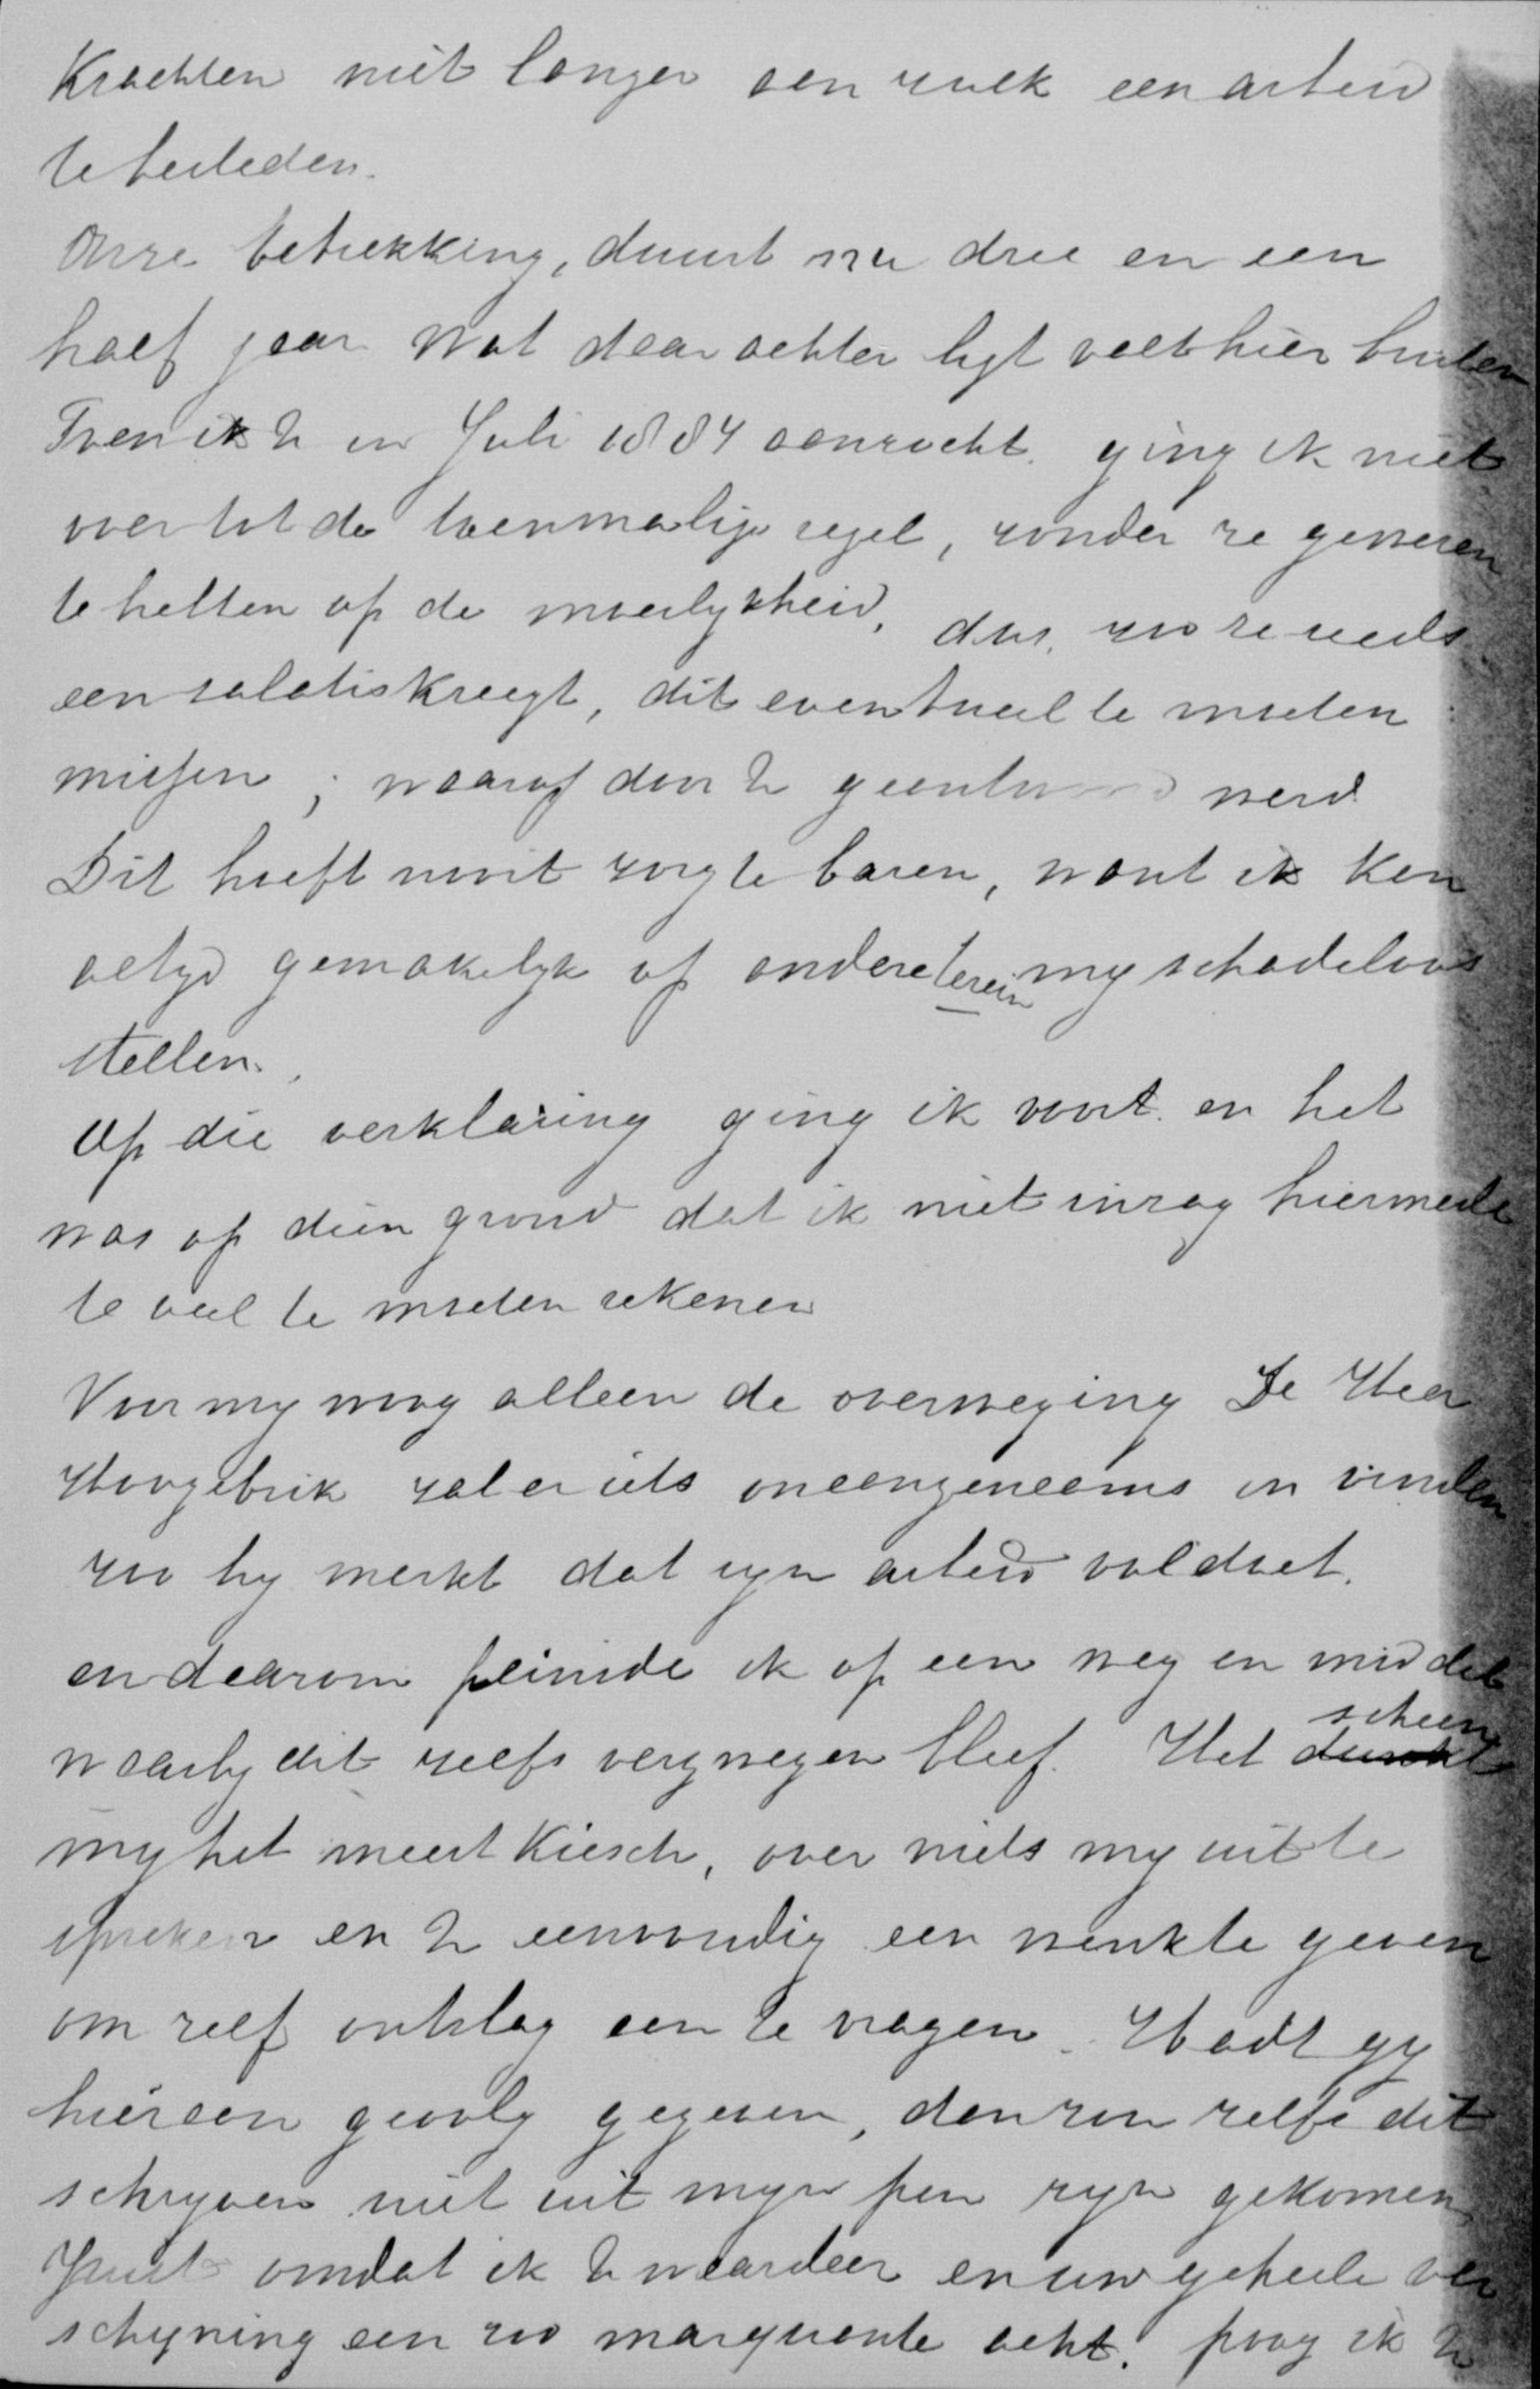 Krachten niet langer aan zulk een arbeid
te besteden.
Onze betrekking, duurt nu drie en een
half jaar Wat daar achter ligt valt hier buiten
Toen ik U in Juli 1884 aanzocht. ging ik niet
over tot de toenmalige regel, zonder te gewezen
te hebben op de moeilykheid, dus, zoo ze reeds
een salaris kreegt, dit eventueel te moeten
missen; waarop door U geantwoord werd
Dit hoeft nooit zorg te baren, want ik kan
altyd gemakelyk op andere terein my schadeloos
stellen.
Op die verklaring ging ik voort. en het
was op dien grond dat ik niet inzag hiermede
te veel te moeten rekenen
Voor my woog alleen de overweging De Heer
Hoogebrik zal er iets onaangenaams in vinden
zoo hy merkt dat zyn arbeid voldoet.
en daarom peinsde ik op een weg en middel
waarby dit zelfs verzwegen bleef. Het scheen
my het meest Kiesch, over niets my uit te
spreken en U eenvoudig een wenk te geven
om zelf ontslag aan te vragen. Hadt gy
hieraan gevolg gegeven, dan zou zelfs dit
schryven niet uit myn pen zyn gekomen
Juist omdat ik U waardeer en uw geheele ver
schyning een zoo marquante acht. poog ik U